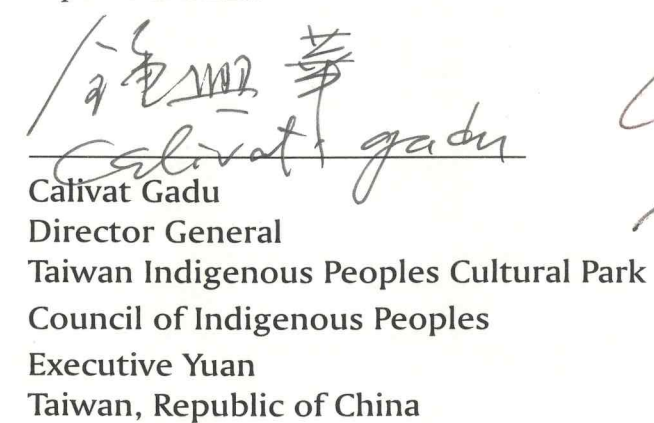 鍾興華
Calivat gadu
Calivat Gadu
Director General
Taiwan Indigenous Peoples Cultural Park
Council of Indigenous Peoples
Executive Yuan
Taiwan, Republic of China